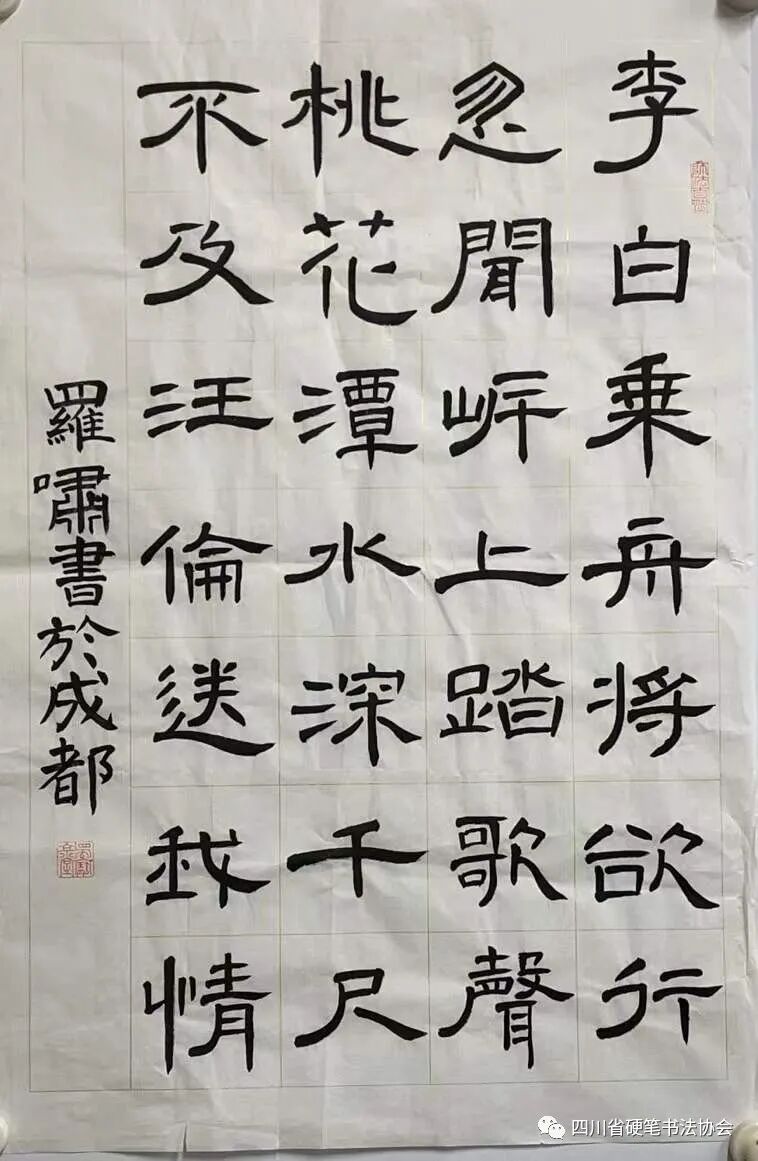 李白乗舟將欲行
忽聞岍上踏歌聲
桃花潭水深千尺
不及汪倫送我情
羅嘯書於成都
四川省硬笔书法协会